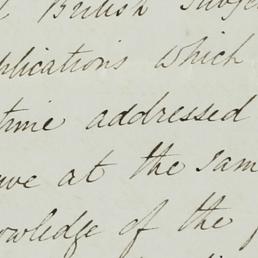 British Subje
plications which
time addressed
ve at the sam
owledge of the